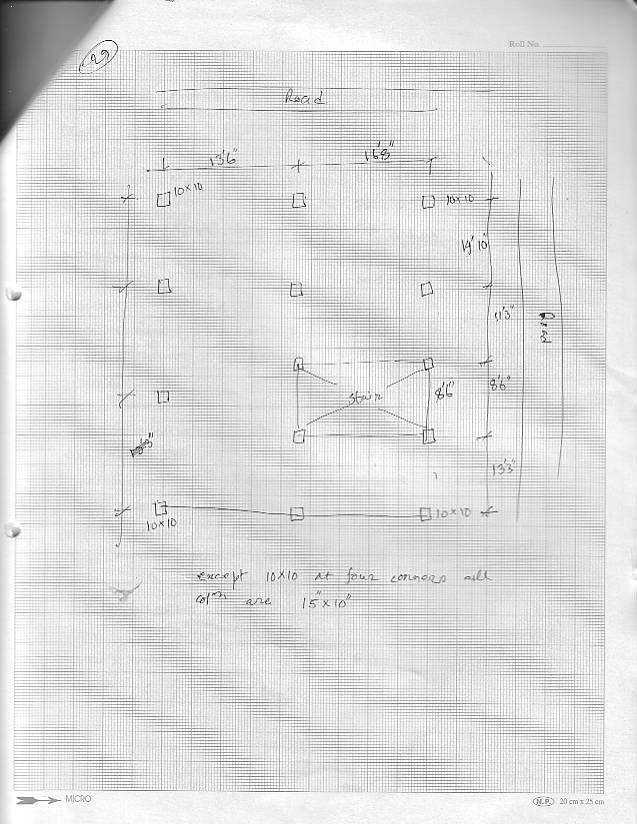 29
Roll No.
Road
13'6"
10x10
10x10
14'10"
11'3"
8'6"
stair
8'6"
13'3"
10x10
10x10
except 10x10 at four corners all
colmn are 15"x10"
MICRO
N.P. 20 cm x 25 cm